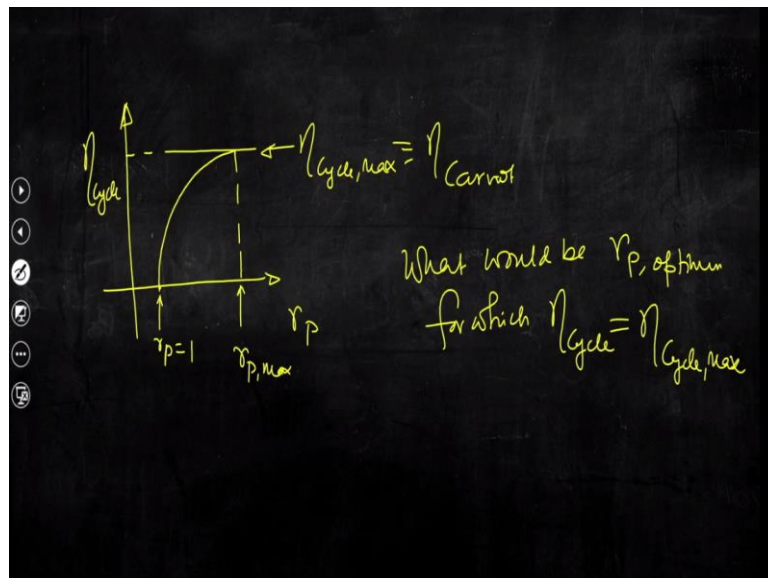 η cycle
η cycle, max ≡ η Carnot
r p
r p = 1
r p, max
What would be r p, optimum
for which η cycle = η cycle, max